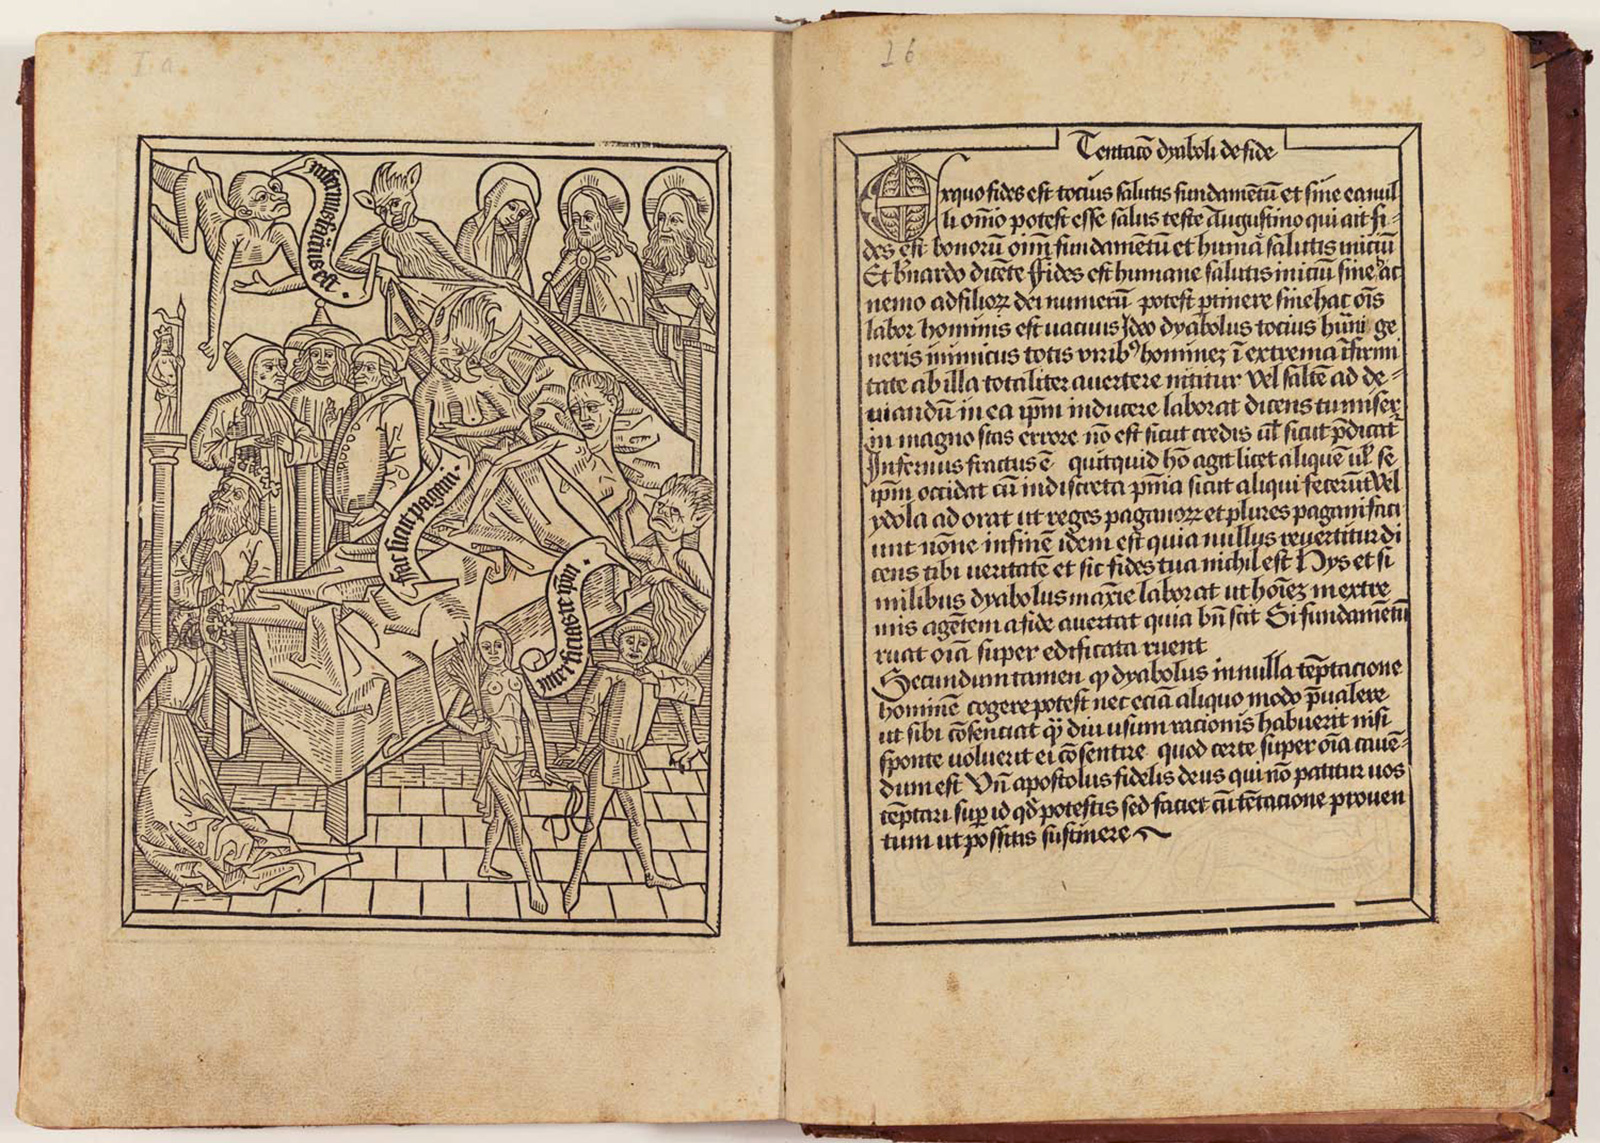 I a
infernus factus est.
fac sicut pagani.
interficias te ipm.
16
Temtacō dyaboli de fide
Exquo fides est tocius salutis fundamētū et sine ea nul
li om̄o potest esse salus teste Augustino qui ait fi⸗
des est bonorū om̄ fundamētū et humā salutis iniciū
Et b̄nardo dicēte Fides est humane salutis iniciū sine hac
nemo ad filioꝝ dei numerū potest ꝑtinere sine hac om̄s
labor hominis est uacuus Ideo dyabolus tocius hūni ge
neris inimicus totis virib⁹ homineꝫ ī extrema īfirmi
tate ab illa totaliter auertere nititur vel saltē ad de⸗
uiandū in ea ip̄m inducere laborat dicens tu miser
in magno stas errore nō est sicut credis ul̄ sicut p̄dicat̄
Infernus fractus ē quitquid hō agit licet aliquē ul̄ se
ip̄m occidat cū indiscreta pn̄ia sicut aliqui fecerūt vel
ydola ad orat ut reges paganoꝝ et plures pagani faci
unt nōne in fine idem est quia nullus reuertitur di
cens tibi ueritatē et sic fides tua nichil est Hys et si
milibus dyabolus maxīe laborat ut hoīeꝫ in extre
mis agētem a fide auertat quia bn̄ scit Si fundamētū
ruat oīa super edificata ruent
Secundum tamen ꝙ dyabolus in nulla tēptacione
hominē cogere potest nec eciā aliquo modo p̄ualere
ut sibi cōsenciat ꝙ̄ diu usum racionis habuerit nisi
sponte uoluerit ei cōsentire quod certe super oīa cauē⸗
dum est Vn̄ apostolus fidelis deus qui nō patitur uos
tēptari suꝑ id qd̄ potestis sed faciet cū tētacione prouen
tum ut possitis sustinere